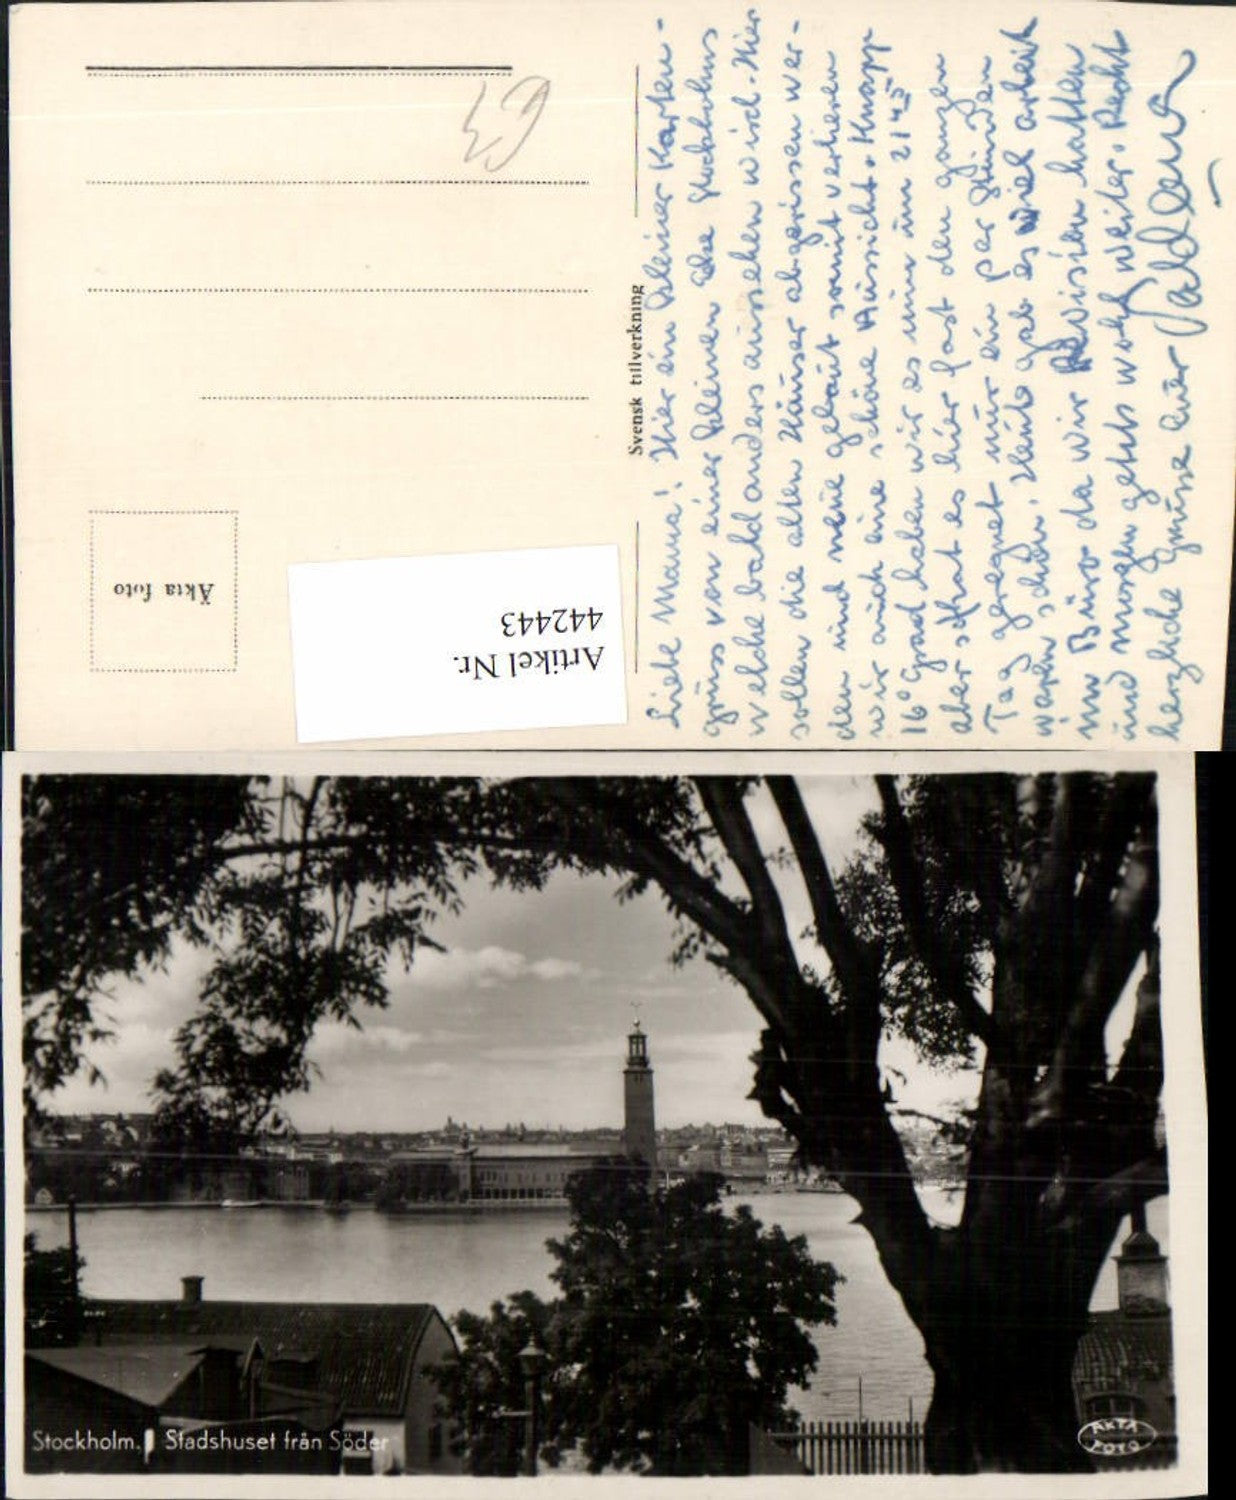 Liebe Mama! Hier ein kleiner Karten-
gruss von einer kleinen Ecke Stockholms
welche bald anders aussehen wird. Hier
sollen die alten Häuser abgerissen wer-
den und neue gebaut somit verlieren
wir auch eine schöne Aussicht. Knapp
16° Grad haben wir es nun um 21 45
aber es hier fast den ganzen
Tag geregnet nur ein par Stunden
waren schön. Heute gab es viel arbeit
im Büro da wir Revision hatten
und morgen gehts wohl weiter. Recht
herzliche Grüsse Euer
Svensk tillverkning
Äkta foto
Artikel Nr.
442443
Stockholm. Stadshuset från Söder
ÄKTA
FOTO